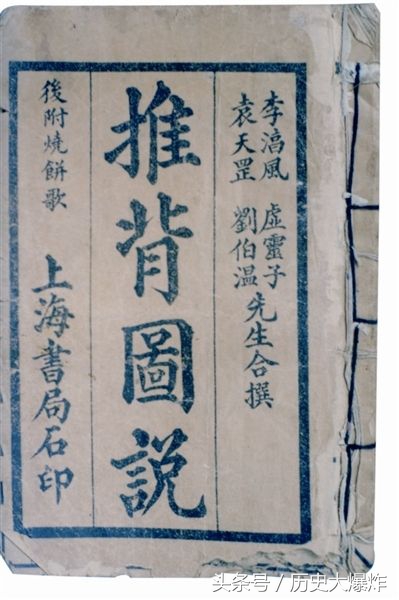 李淳風 虛靈子
袁天罡 劉伯温
先生合撰
推背圖説
後附燒餅歌
上海書局石印
头条号 / 历史大爆炸